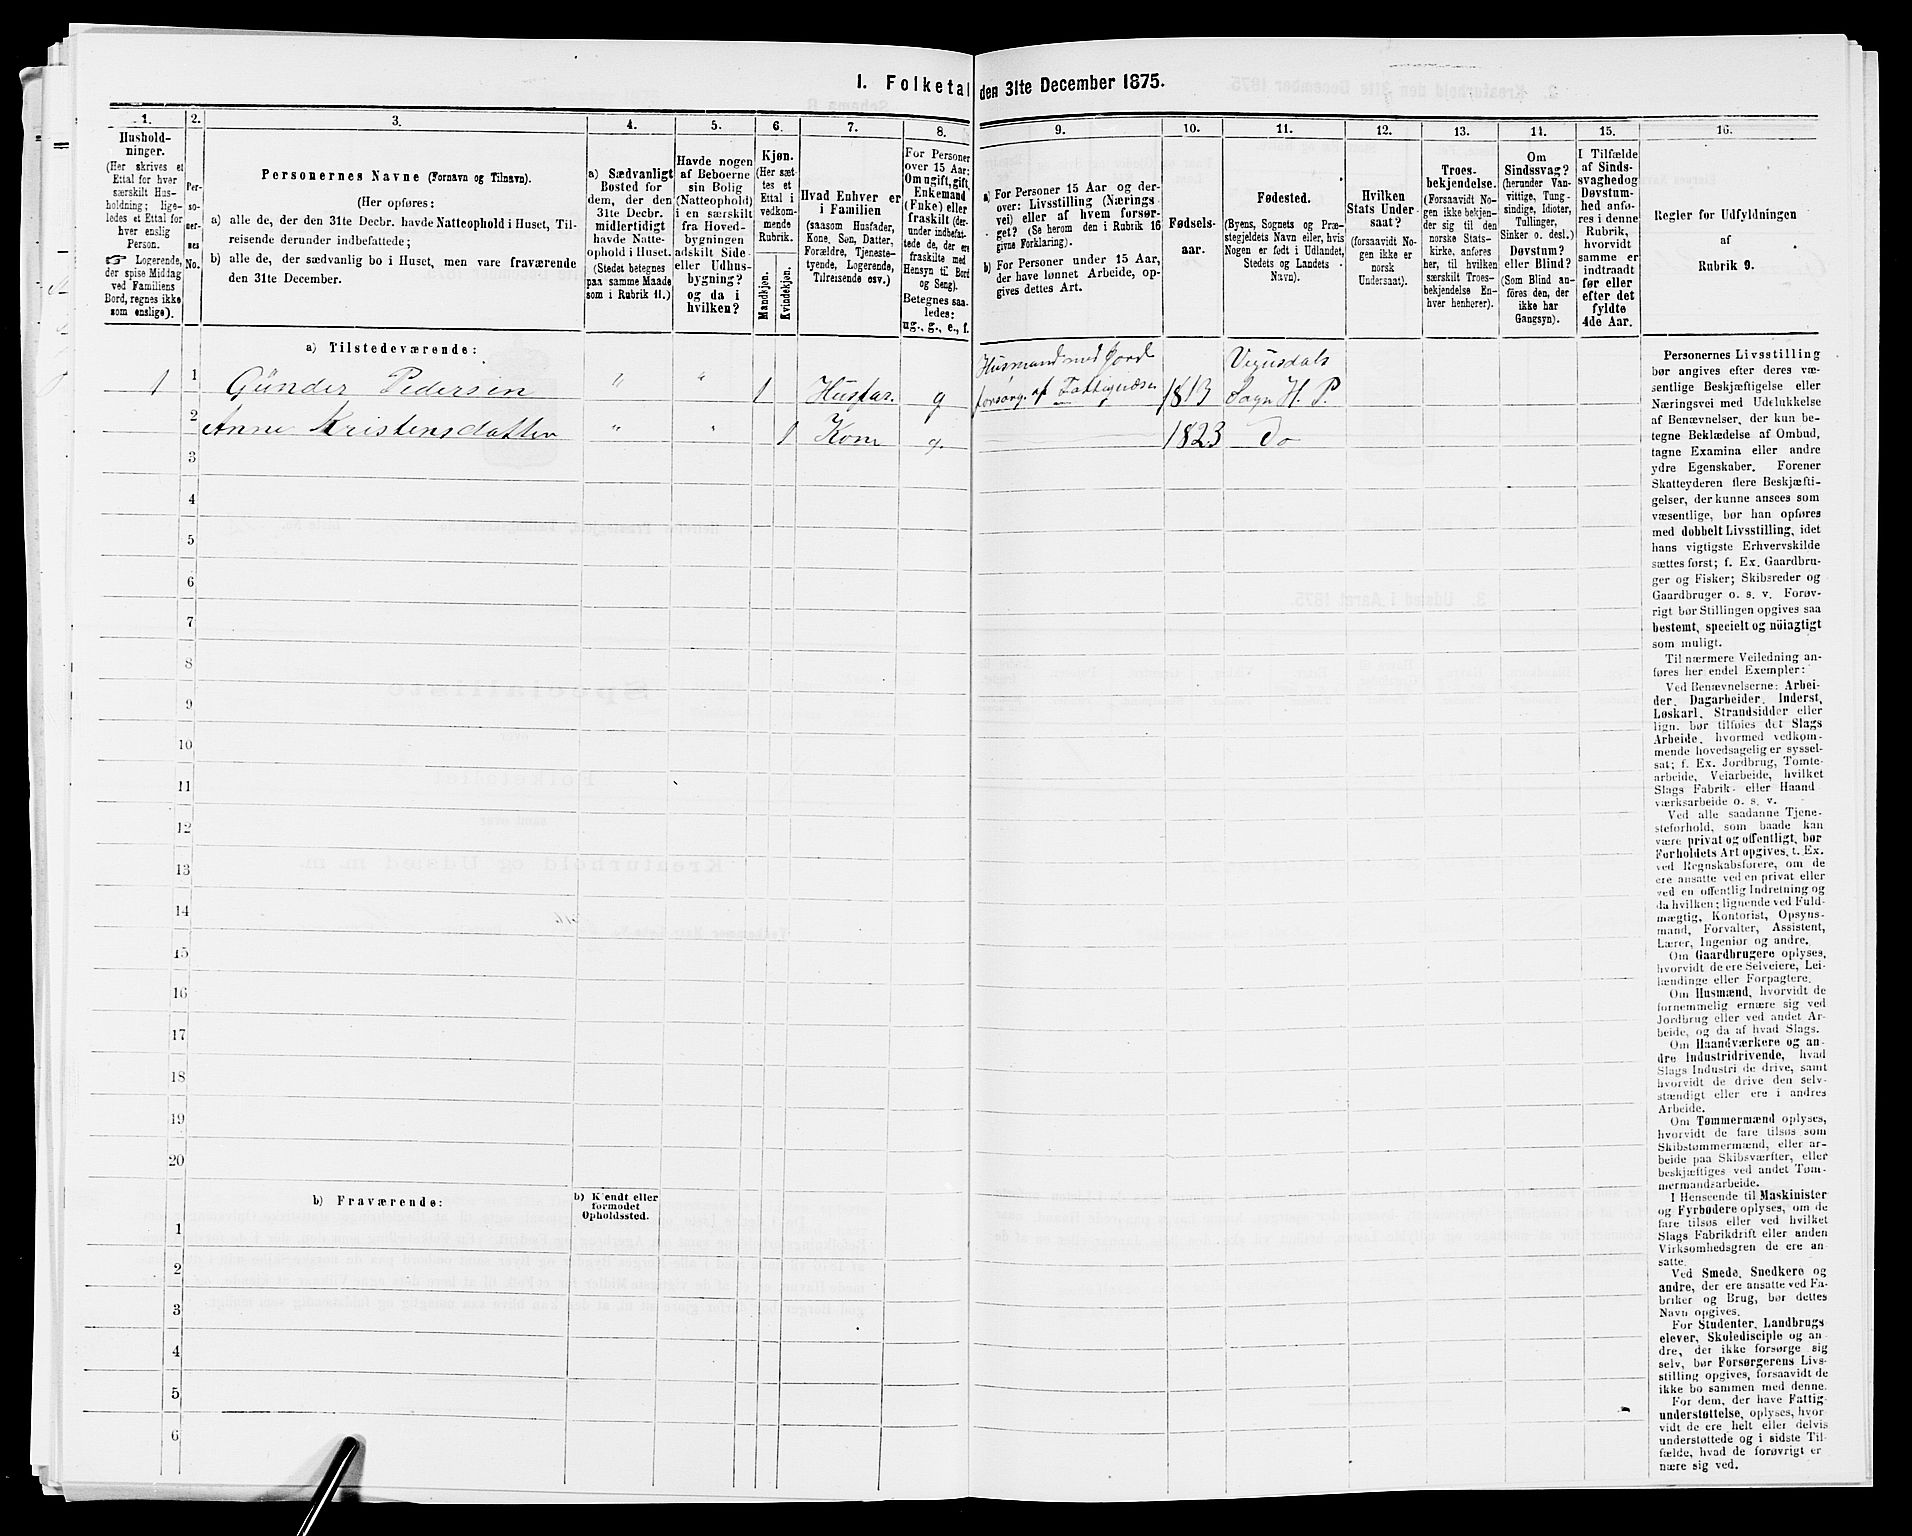 1. Folketal den 31te December 1875.
1.
Hushold-
ninger.
(Her skrives et
Ettal for hver
særskilt Hus-
holdning; lige-
ledes et Ettal for
hver enslig
Person.
☞ Logerende,
der spise Middag
ved Familiens
Bord, regnes ikke
som enslige).
2.
Per-
so-
ner-
nes
No.
3.
Personernes Navne (Fornavn og Tilnavn).
(Her opføres:
a) alle de, der den 31te Decbr. havde Natteophold i Huset, Til-
reisende derunder indbefattede;
b) alle de, der sædvanlig bo i Huset, men vare fraværende
den 31te December.
4.
a) Sædvanligt
Bosted for
dem, der den
31te Decbr.
midlertidigt
havde Natte-
ophold i Huset.
(Stedet betegnes
paa samme Maade
som i Rubrik 11.)
5.
Havde nogen
af Beboerne
sin Bolig
(Natteophold)
i en særskilt
fra Hoved-
bygningen
adskilt Side-
eller Udhus-
bygning?
og da i
hvilken?
6.
Kjøn.
(Her sæt-
tes et
Ettal i
vedkom-
mende
Rubrik.
Mandkjøn.
Kvindekjøn.
7.
Hvad Enhver er
i Familien
(saasom Husfader,
Kone, Søn, Datter,
Forældre, Tjeneste-
tyende, Logerende,
Tilreisende osv.)
8.
For Personer
over 15 Aar:
Om ugift, gift,
Enkemand
(Enke) eller
fraskilt (der-
under indbefat-
tede de, der ere
fraskilte med
Hensyn til Bord
og Seng).
Betegnes saa-
ledes:
ug., g., e., f.
9.
a) For Personer 15 Aar og der-
over: Livsstilling (Nærings
vei) eller af hvem forsør-
get? (Se herom den i Rubrik 16
givne Forklaring).
b) For Personer under 15 Aar,
der have lønnet Arbeide, op-
gives dettes Art.
10.
Fødsels-
aar.
11.
Fødested.
(Byens, Sognets og Præ-
stegjeldets Navn eller, hvis
Nogen er født i Udlandet,
Stedets og Landets
Navn).
12.
Hvilken
Stats Under-
saat?
(forsaavidt No-
gen ikke er
norsk
Undersaat).
13.
Troes-
bekjendelse.
(Forsaavidt No-
gen ikke bekjen-
der sig til den
norske Stats-
kirke, anføres
her, til hvilken
særskilt Troes-
bekjendelse En-
hver henhører).
14.
Om
Sindssvag?
(herunder Van-
vittige, Tung-
sindige, Idioter,
Tullinger,
Sinker o. desl.)
Døvstum?
eller Blind?
(Som Blind an-
føres den, der
ikke har
Gangsyn).
15.
I Tilfælde
af Sinds-
svaghed og
Døvstum-
hed anfø-
res i denne
Rubrik,
hvorvidt
samme er
indtraadt
før eller
efter det
fyldte
4de Aar.
16.
Regler for Udfyldningen
af
Rubrik 9.
a) Tilstedeværende:
1 1 Günder Pedersen " " 1 Husfar. g Husmand med Jord
forsørg. af Fattigvæsen 1813 Vegusdals
Sogn H. P.
2 Anne Kristensdatter " " 1 Kone g. 1823 do
3
4
5
6
7
8
9
10
11
12
13
14
15
16
17
18
19
20
b) Fraværende:
b) Kjendt eller
formodet
Opholdssted.
1
2
3
4
5
6
Personernes Livsstilling
bør angives efter deres væ-
sentlige Beskjæftigelse eller
Næringsvei med Udelukkelse
af Benævnelser, der kun be-
tegne Beklædelse af Ombud,
tagne Examina eller andre
ydre Egenskaber. Forener
Skatteyderen flere Beskjæfti-
gelser, der kunne ansees som
væsentlige, bør han opføres
med dobbelt Livsstilling, idet
hans vigtigste Erhvervskilde
sættes først; f. Ex. Gaardbru-
ger og Fisker; Skibsreder og
Gaardbruger o. s. v. Forøv-
rigt bør Stillingen opgives saa
bestemt, specielt og nöiagtigt
som muligt.
Til nærmere Veiledning an-
føres her endel Exempler:
Ved Benævnelserne: Arbei-
der, Dagarbeider, Inderst,
Løskarl, Strandsidder eller
lign. bør tilføies det Slags
Arbeide, hvormed vedkom-
mende hovedsagelig er syssel-
sat; f. Ex. Jordbrug, Tomte-
arbeide, Veiarbeide, hvilket
Slags Fabrik- eller Haand
værksarbeide o. s. v.
Ved alle saadanne Tjene-
steforhold, som baade kan
være privat og offentligt, bør
Forholdets Art opgives, t. Ex.
ved Regnskabsførere, om de
ere ansatte ved en privat eller
ved en offentlig Indretning og
da hvilken; lignende ved Fuld-
mægtig, Kontorist, Opsyns-
mand, Forvalter, Assistent,
Lærer, Ingeniør og andre.
Om Gaardbrugere oplyses,
hvorvidt de ere Selveiere, Lei-
lændinge eller Forpagtere.
Om Husmænd, hvorvidt de
fornemmelig ernære sig ved
Jordbrug eller ved andet Ar-
beide, og da af hvad Slags.
Om Haandværkere og an-
dre Industridrivende, hvad
Slags Industri de drive, samt
hvorvidt de drive den selv-
stændigt eller ere i andres
Arbeide.
Om Tømmermænd oplyses,
hvorvidt de fare tilsøs som
Skibstømmermænd, eller ar-
beide paa Skibsværfter, eller
beskjæftiges ved andet Tøm-
mermandsarbeide.
I Henseende til Maskinister
og Fyrbødere oplyses, om de
fare tilsøs eller ved hvilket
Slags Fabrikdrift eller anden
Virksomhedsgren de ere an-
satte.
Ved Smede, Snedkere og
andre, der ere ansatte ved Fa-
briker og Brug, bør dettes
Navn opgives.
For Studenter, Landbrugs
elever, Skoledisciple og an-
dre, der ikke forsørge sig
selv, bør Forsørgerens Livs-
stilling opgives, forsaavidt de
ikke bo sammen med denne.
For dem, der have Fattig-
understøttelse, oplyses, hvor-
vidt de ere helt eller delvis
understøttede og i sidste Til-
fælde, hvad de forøvrigt er
nære sig ved.